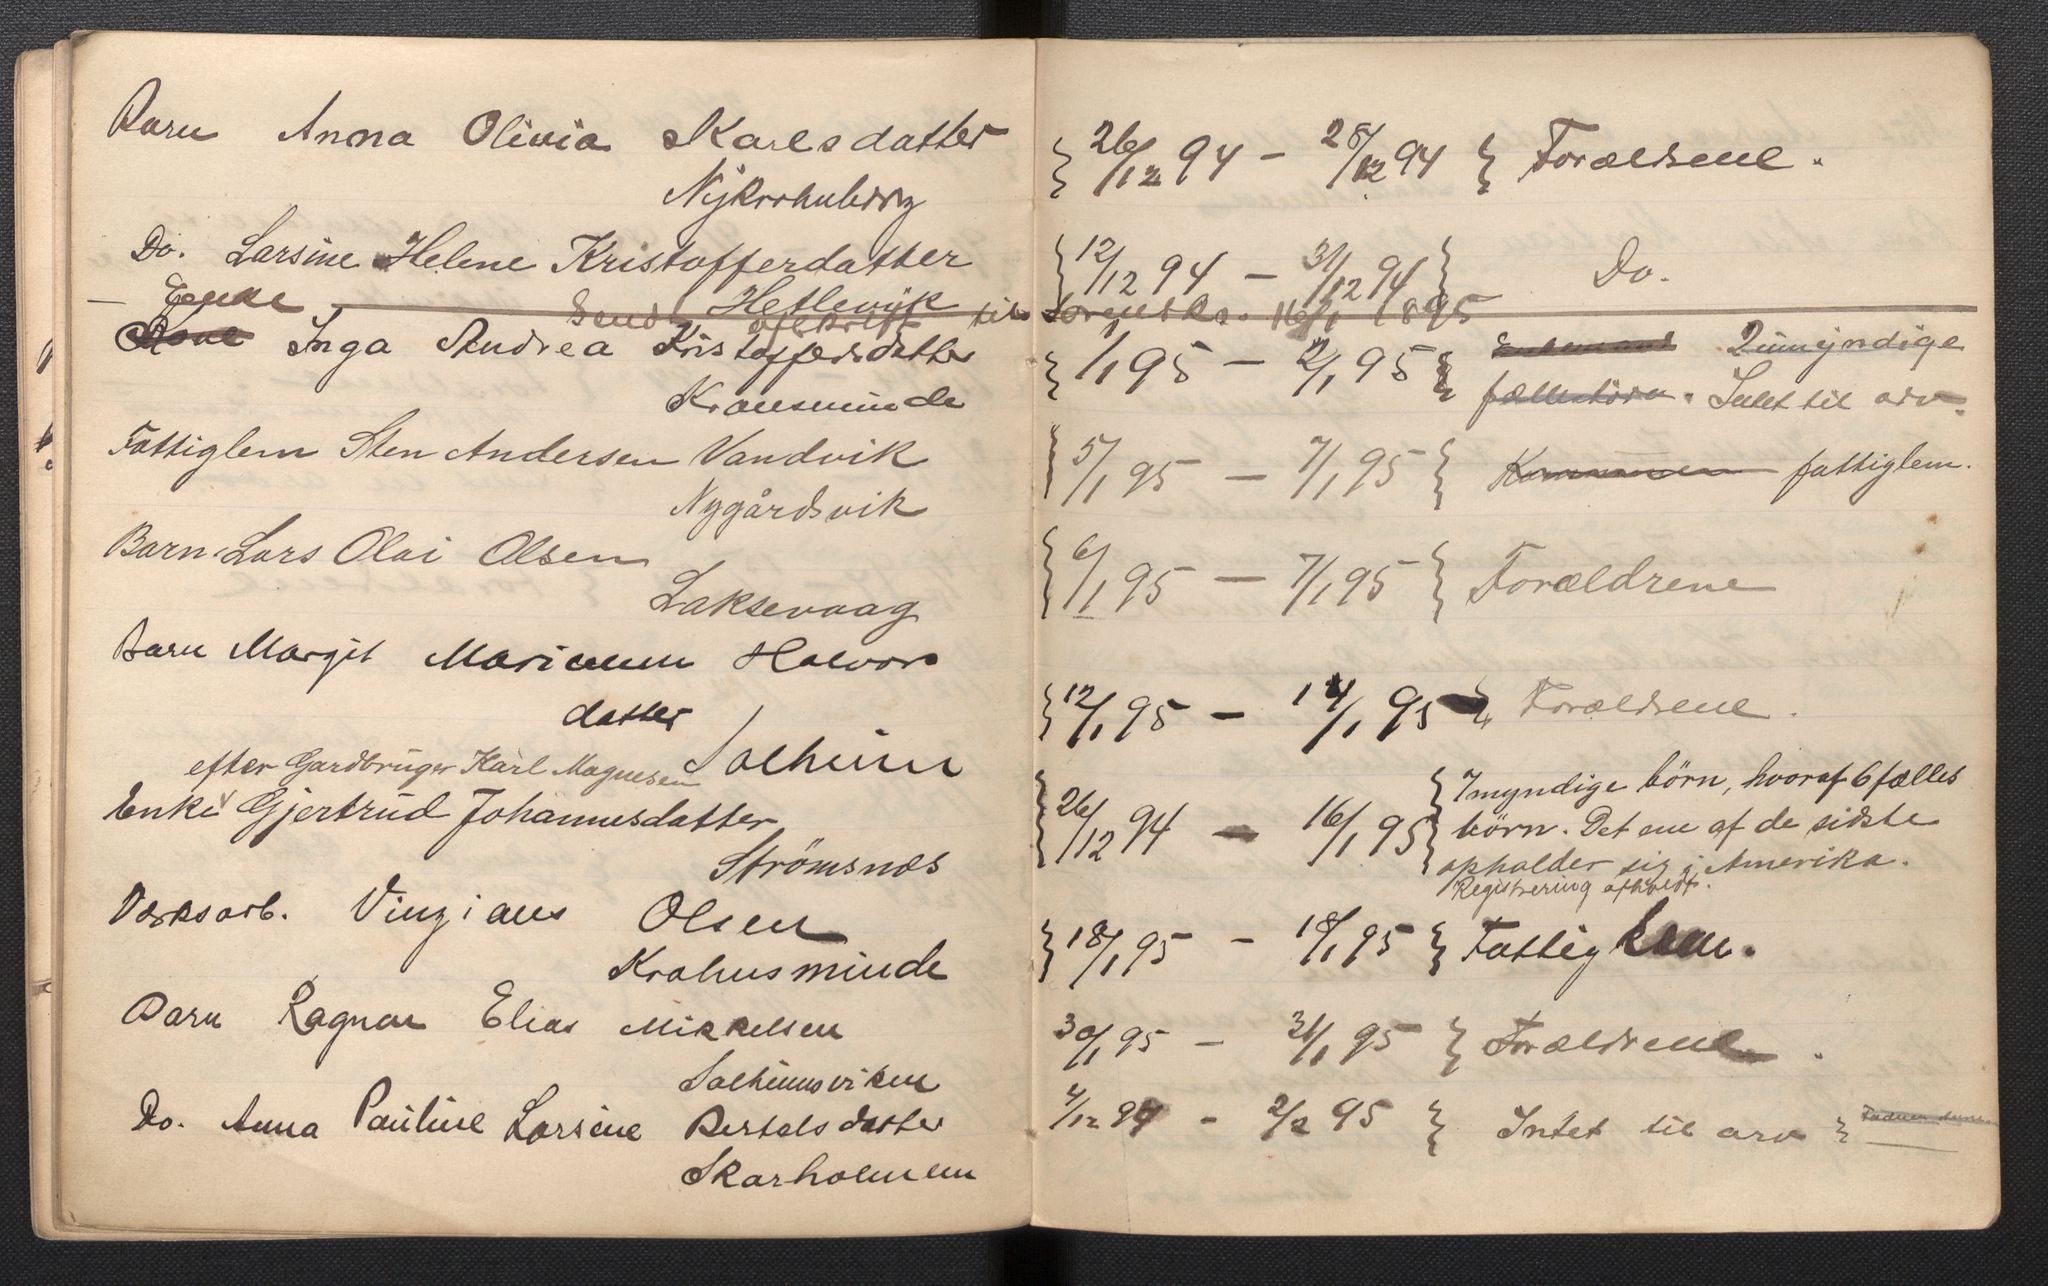 Barn Anna Olivia Karlsdatter
Nykrohnborg
Do. Larsine Helene Kristofferdatter
Hetlevik
Sendt afskrift til Sorenskr. 16/1 1895
Enke
Inga Andrea Kristoffersdatter
Kronsminde
Fattiglem Sten Andersen Vandvik
Nygårdsvik
Barn Lars Olai Olsen
Laksevaag
Barn Margit Marianna Halvors
datter
Solheim
efter Gardbruger Karl Magnesen
Enke Gjertrud Johannesdatter
Strömsnæs
Værksarb. Vinzians Olsen
Krohnsminde
Barn Ragnar Elias Mikkelsen
Solheimsviken
Do. Anna Pauline Larsine Bertelsdatter
Skarholmen
26/12 94 — 28/12 94 Forældrene.
12/12 94 — 31/12 94 Do.
1/1 95 — 2/1 95 Enkemand 2 umyndige
fællesbörn. Intet til arv.
5/1 95 — 7/1 95 Kommunen fattiglem.
6/1 95 — 7/1 95 Forældrene
12/1 95 — 14/1 95 Forældrene.
26/12 94 — 16/1 95 7 myndige börn, hvoraf 6 fælles
börn. Det ene af de sidste
opholder sig i Amerika.
Registrering afholdt.
18/1 95 — 18/1 95 Fattiglem.
30/1 95 — 31/1 95 Forældrene.
4/12 94 — 2/2 95 Intet til arv